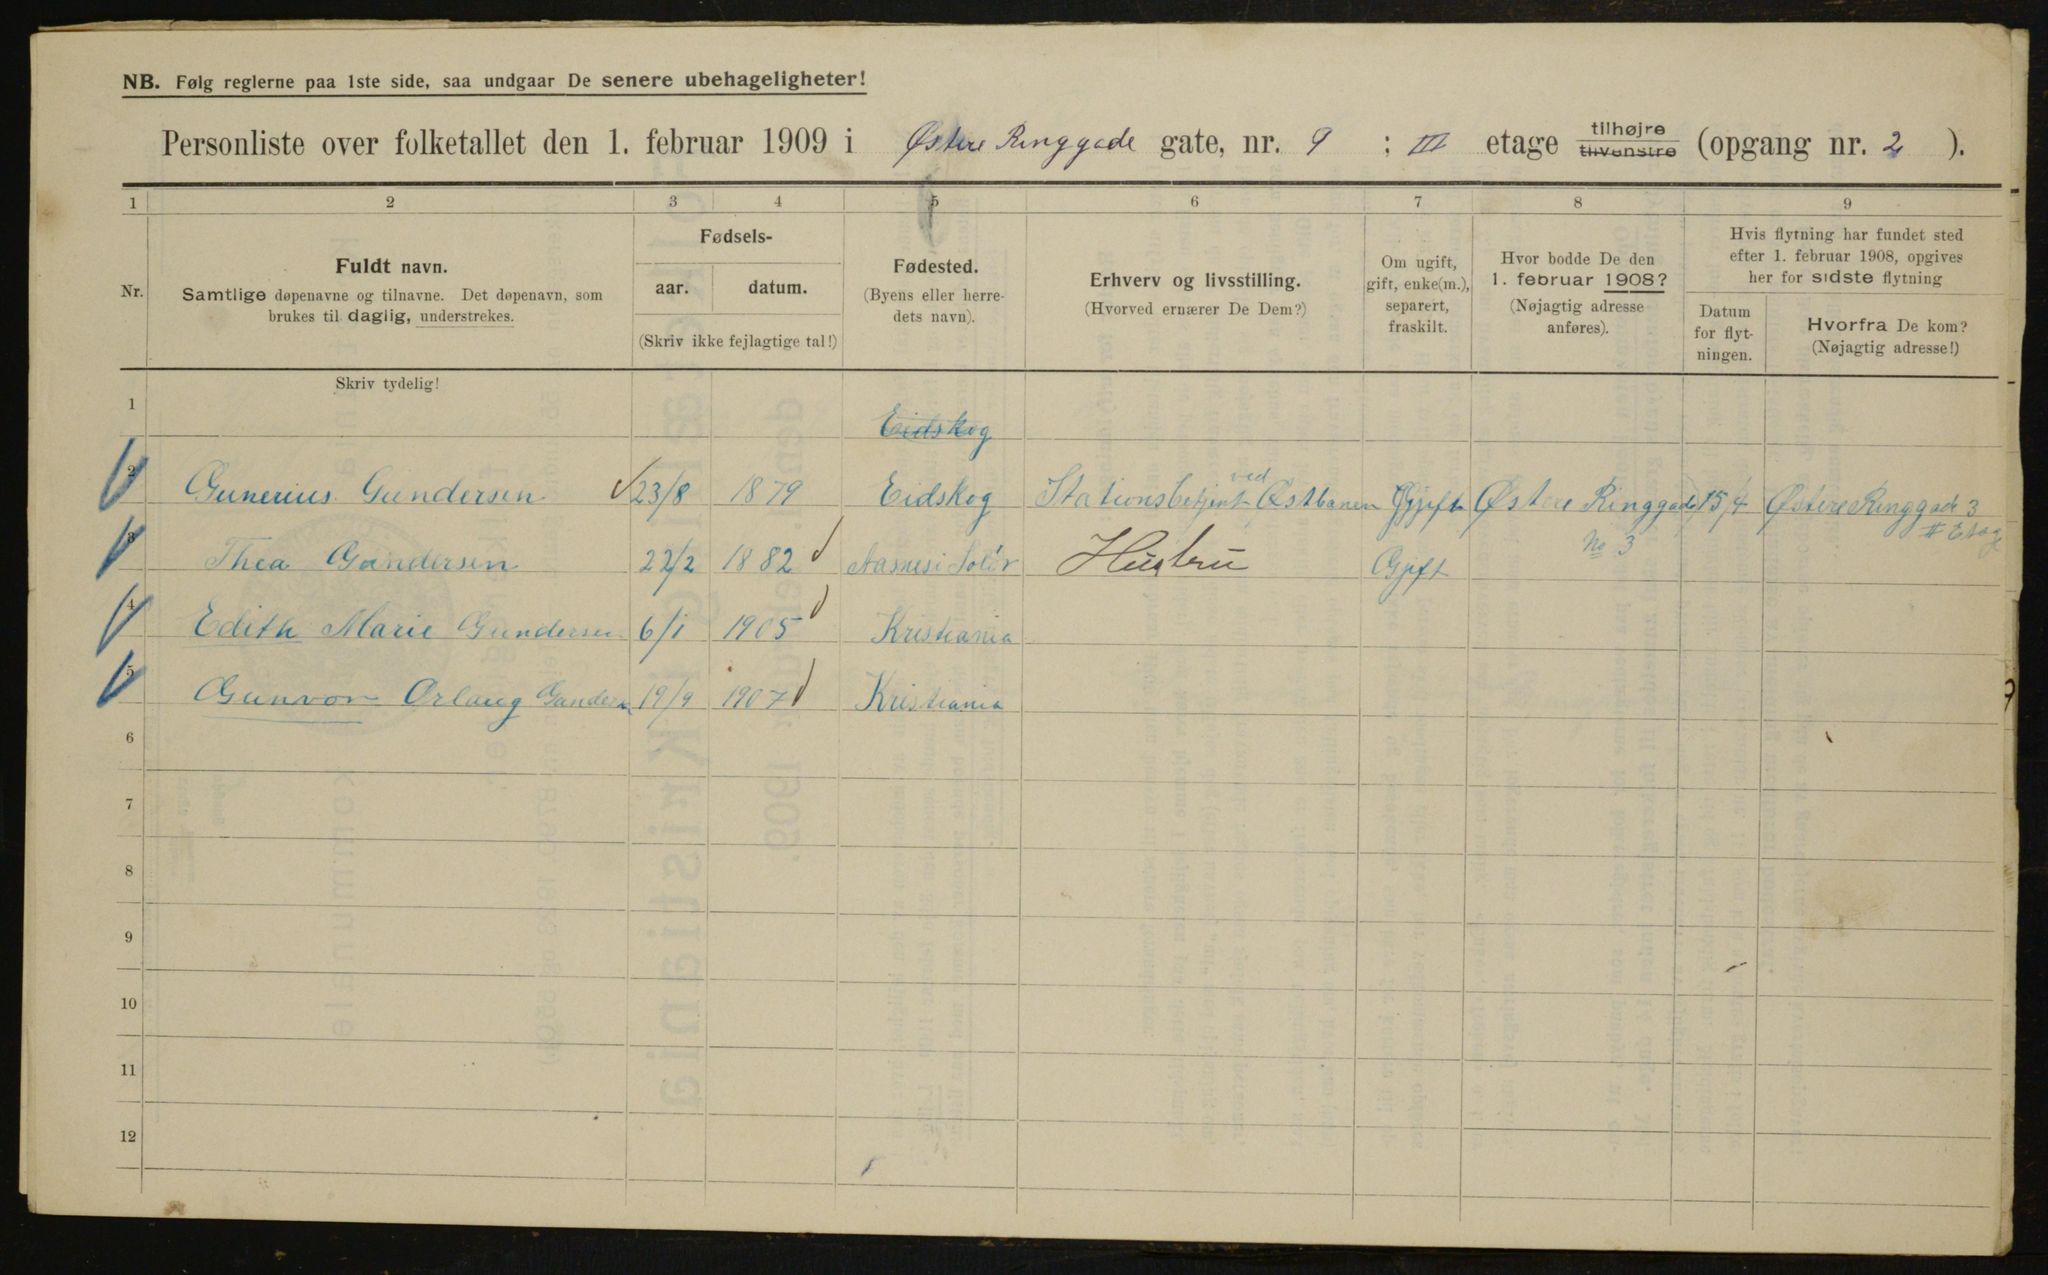 NB. Følg reglerne paa 1ste side, saa undgaar De senere ubehageligheter!
Personliste over folketallet den 1. februar 1909 i Østere Ringgade gate, nr. 9 ; III etage tilhøjre tilvenstre (opgang nr. 2 ).
1 2 3 4 5 6 7 8 9
Nr.
Fuldt navn.
Samtlige døpenavne og tilnavne. Det døpenavn, som
brukes til daglig, understrekes.
Fødsels-
aar. datum.
(Skriv ikke fejlagtige tal!)
Fødested.
(Byens eller herre-
dets navn).
Erhverv og livsstilling.
(Hvorved ernærer De Dem?)
Om ugift,
gift, enke(m.),
separert,
fraskilt.
Hvor bodde De den
1. februar 1908?
(Nøjagtig adresse
anføres).
Hvis flytning har fundet sted
efter 1. februar 1908, opgives
her for sidste flytning
Datum
for flyt-
ningen.
Hvorfra De kom?
(Nøjagtig adresse!)
Skriv tydelig!
1 Eidskog
2 Gunerius Gundersen 23/8 1879 Eidskog Stationsbetjent ved Østbanen Gjift Østere Ringgade 15/4 Østere Ringgade 3
No 3 II Etage
3 Thea Gundersen 22/2 1882 Aasnes i Solør Hustru Gjift
4 Edith Marie Gundersen 6/1 1905 Kristiania
5 Gunvor Orlaug Gundersen 19/9 1907 Kristiania
6
7
8
9
10
11
12